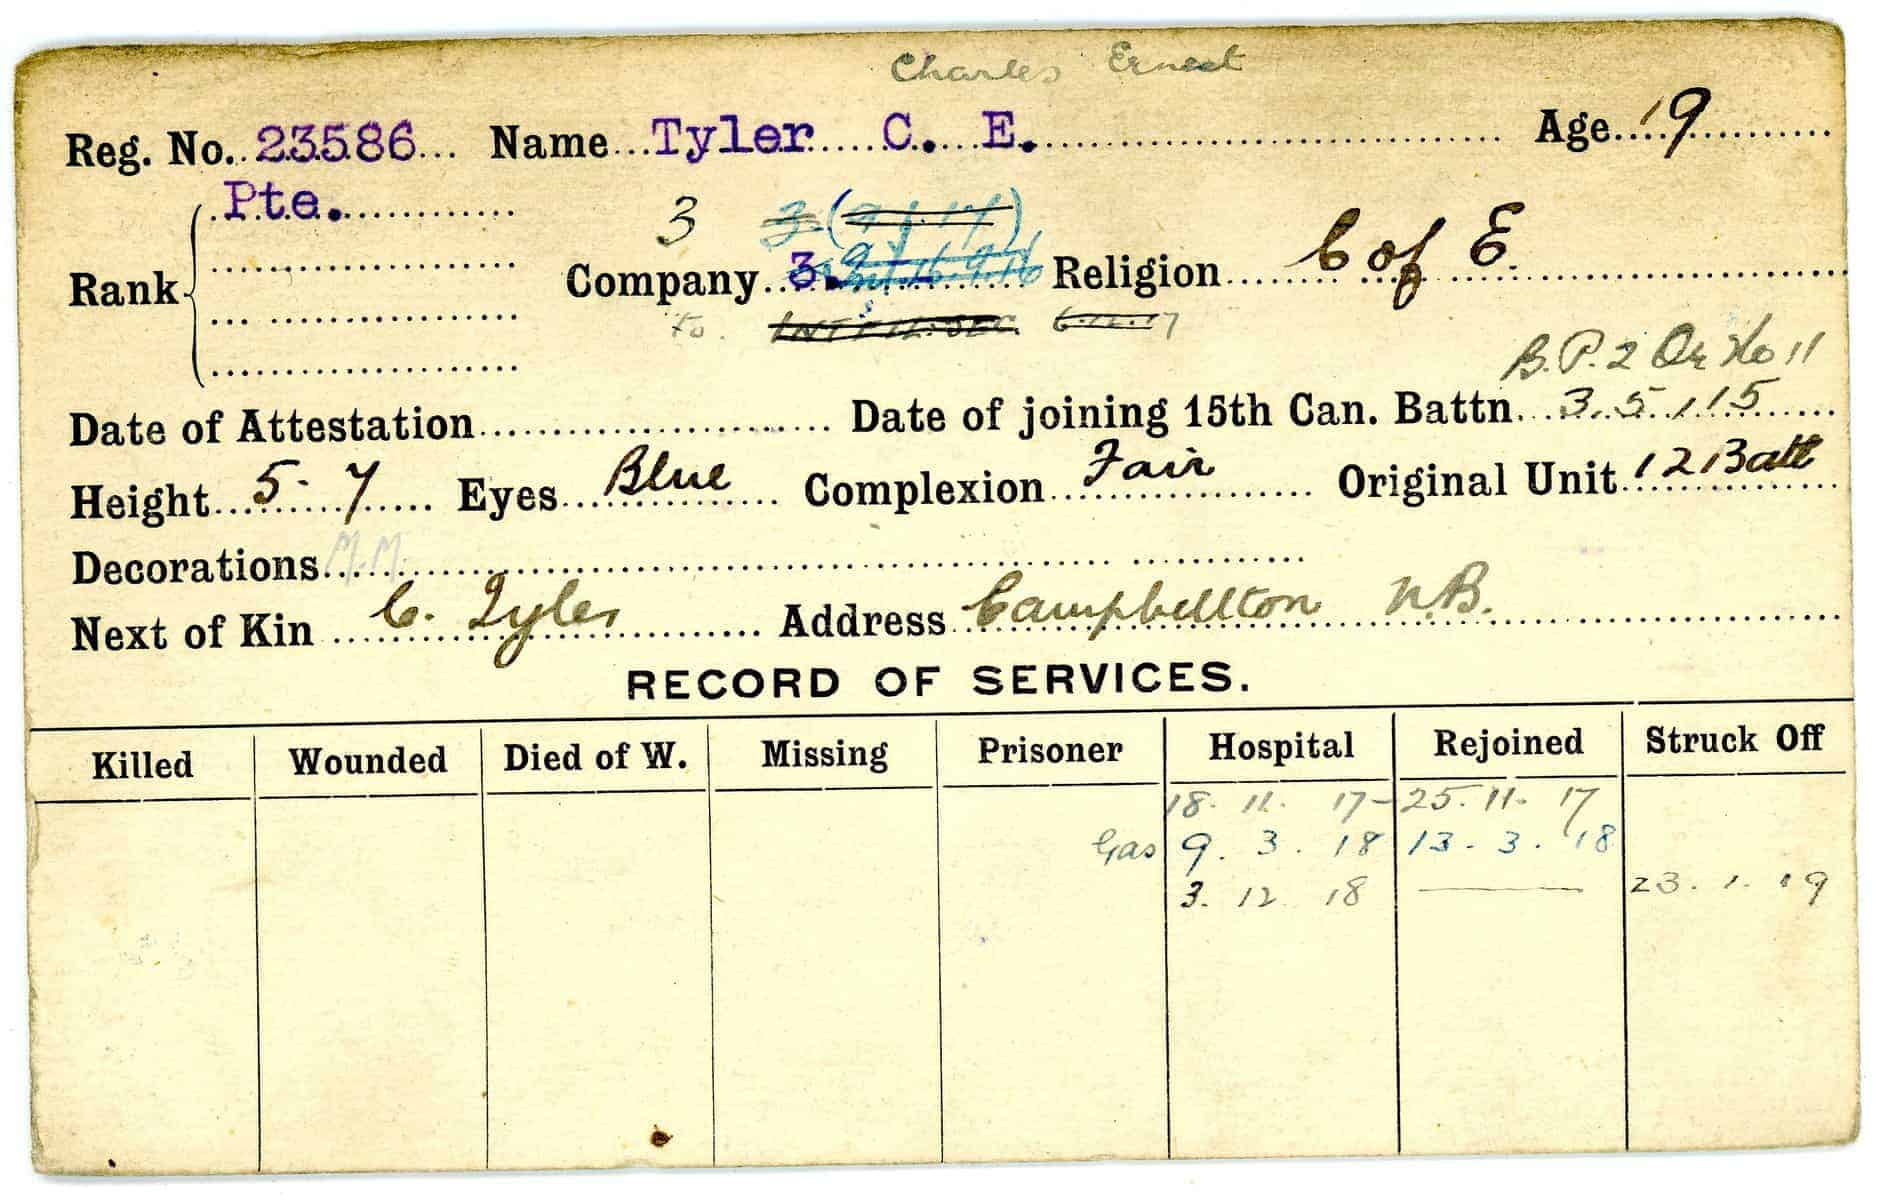 Charles Ernest
Reg. No. 23586 Name Tyler C. E. Age 19
Pte.
3 3 (
Rank Company 3. 16.9.16 Religion C of E.
to. INTELL. SEC. 6.12.17
B.P. 2 Or No 11
Date of Attestation Date of joining 15th Can. Battn. 3.5.15
Height 5-7 Eyes Blue Complexion Fair Original Unit 12 Batt
Decorations M.M.
Next of Kin C. Tyler Address Campbellton N.B.
RECORD OF SERVICES.
Killed Wounded Died of W. Missing Prisoner Hospital Rejoined Struck Off
18. 11. 17 - 25. 11. 17
Gas 9. 3. 18 13. 3. 18
3. 12 18 — 23. 1. 19